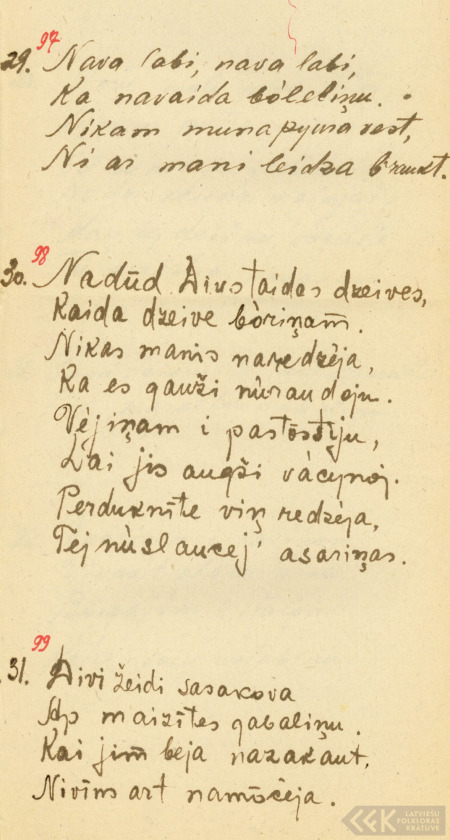 97
29. Nava labi, nava labi,
Ka navaida bóleliņu.
Nikam muna pyura vest,
Ni ar mani leidza braukt.
98
30. Nadūd Divs taidas dzeives,
Kaida dzeive bòriņam̄.
Nikas manis naredzèja,
Ka es gauži nùraudoju.
Vèjiņam i pastōstiju,
Lai jis augši vàcynoj.
Perduknīte viņ redzèja,
Tej nùslaucej' asariņas.
99
31. Divi žeidi sasakova
Ap maizītes gabaliņu.
Kai jim̄ beja nazakaut,
Nivīns art namōcēja.
LATVIEŠU
FOLKLORAS
KRĀTUVE